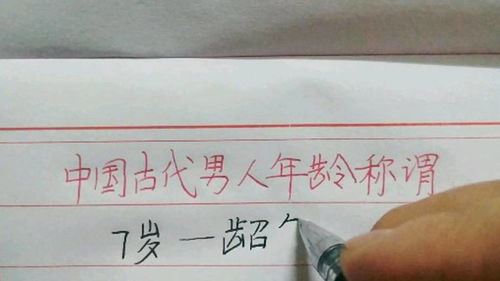 中国古代男人年龄称谓
7岁一龆